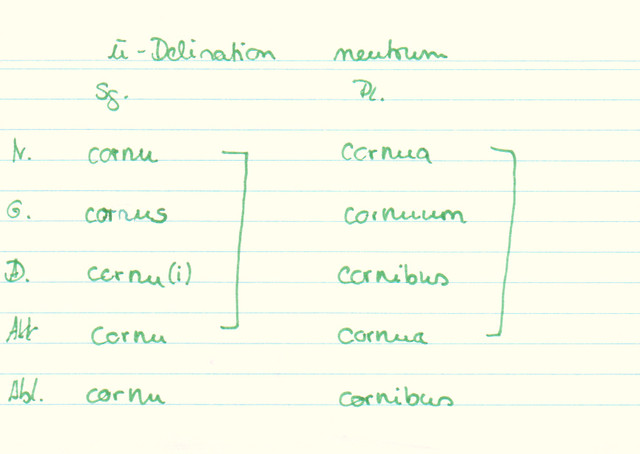 ū-Delination neutrum
Sg. Pl.
N. cornu cornua
G. cornus cornuum
D. cornu(i) cornibus
Akk cornu cornua
Abl. cornu cornibus